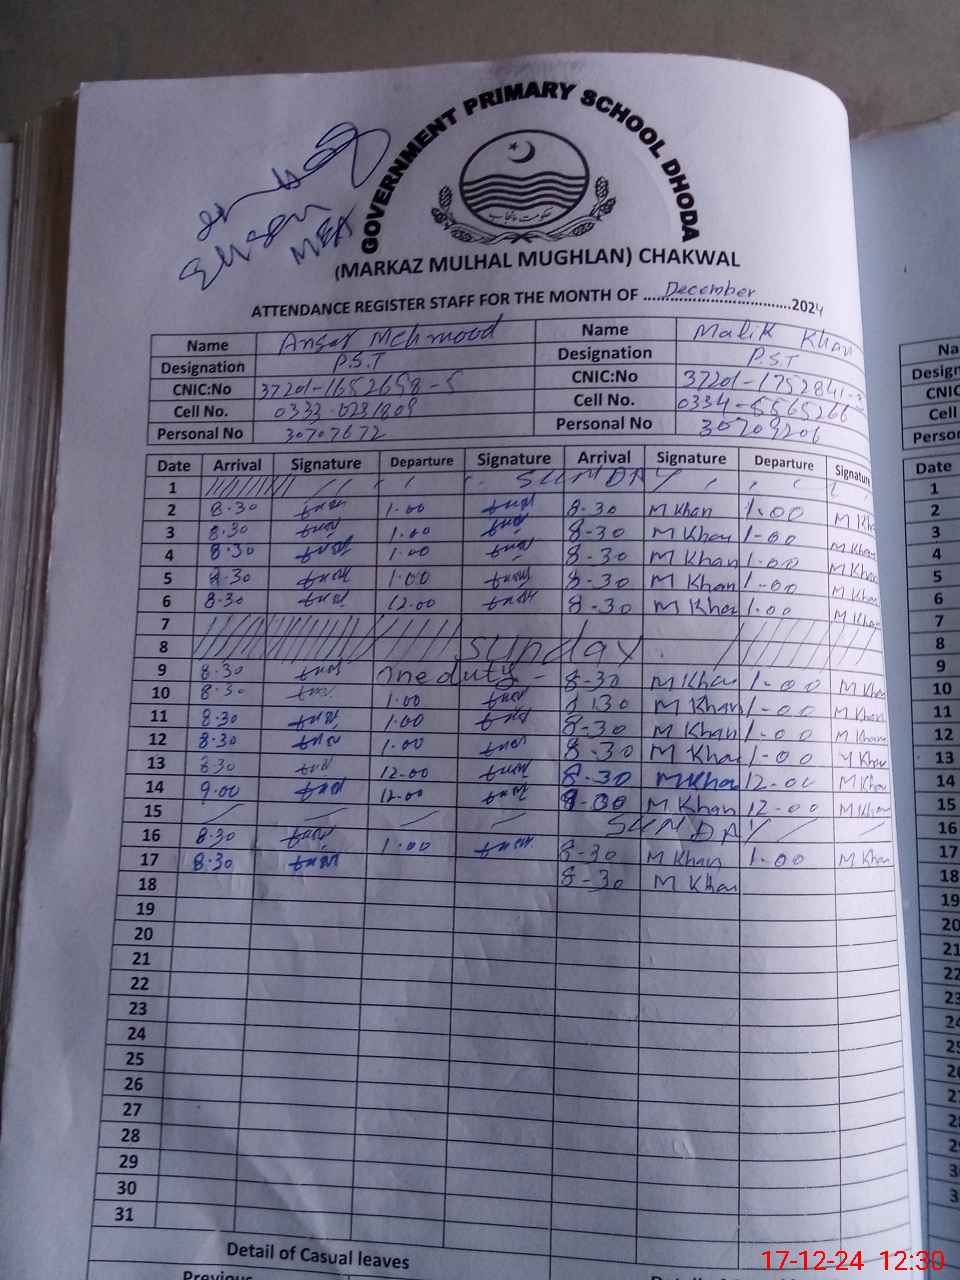 GOVERNMENT PRIMARY SCHOOL DHODA
حکومت پنجاب
MEA
(MARKAZ MULHAL MUGHLAN) CHAKWAL
ATTENDANCE REGISTER STAFF FOR THE MONTH OF December 2024
Name Ansar Mehmood Name Malik Khan
Designation P.S.T Designation P.S.T
CNIC:No 37201-1652658-5 CNIC:No 37201-1752841-
Cell No. 0333-0231809 Cell No. 0334-5565266
Personal No 30707672 Personal No 30709206
Date Arrival Signature Departure Signature Arrival Signature Departure Signature
1 SUNDAY
2 8-30 1-00 8-30 M Khan 1-00 M Kha
3 8-30 1-00 8-30 M Khan 1-00 M Khan
4 8-30 1-00 8-30 M Khan 1-00 M Khan
5 8-30 1-00 8-30 M Khan 1-00 M Khan
6 8-30 12-00 8-30 M Khan 1-00 M Khan
7
8 Sunday
9 8-30 duty - 8-30 M Khan 1-00 M Khan
10 8-30 1-00 8-30 M Khan 1-00 M Khan
11 8-30 1-00 8-30 M Khan 1-00 M Khan
12 8-30 1-00 8-30 M Khan 1-00 M Khan
13 8-30 12-00 8-30 M Khan 12-00 M Khan
14 9-00 12-00 9-00 M Khan 12-00 M Khan
15 SUNDAY
16 8-30 1-00 8-30 M Khan 1-00 M Khan
17 8-30 8-30 M Khan
18
19
20
21
22
23
24
25
26
27
28
29
30
31
Detail of Casual leaves
Previous
Na
Design
CNIC
Cell
Perso
Date
1
2
3
4
5
6
7
8
9
10
11
12
13
14
15
16
17
18
19
20
21
22
17-12-24 12:30